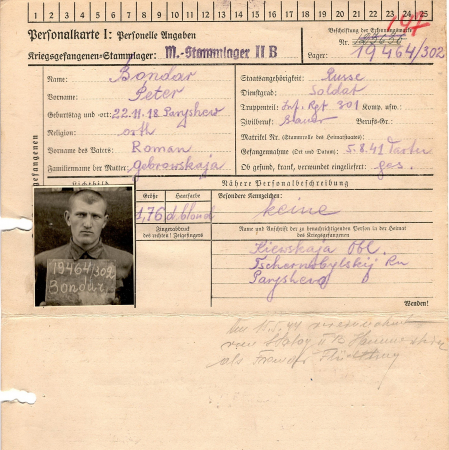 1 2 3 4 5 6 7 8 9 10 11 12 13 14 15 16 17 18 19 20 21 22 23 24 25
Personalkarte I: Personelle Angaben
Beschriftung der Erkennungsmarke
Nr. 19464/302
Kriegsgefangenen-Stammlager: M.-Stammlager II B
Lager:
Name: Bondar
Staatsangehörigkeit: Russe
Vorname: Peter
Dienstgrad: Soldat
Geburtstag und -ort: 22.11.18 Paryshew
Truppenteil: Inf. Rgt 301 Komp. usw.:
Religion: orth
Zivilberuf: Bauer Berufs-Gr.:
Vorname des Vaters: Roman
Matrikel Nr. (Stammrolle des Heimatstaates):
Gefangennahme (Ort und Datum): 5.8.41
Familienname der Mutter: Gebrowskaja
Ob gesund, krank, verwundet eingeliefert: ges.
des Kriegsgefangenen
Lichtbild
Nähere Personalbeschreibung
Größe
Haarfarbe
Besondere Kennzeichen:
1,76 d. blond
keine
Fingerabdruck
des rechten! Zeigefingers
Name und Anschrift der zu benachrichtigenden Person in der Heimat
des Kriegsgefangenen
Kiewskaja Obl.
Tschernobylskij Rn
Paryshew
19464/302
Bondar
Wenden!
von Stalag II B Hammerstein
als